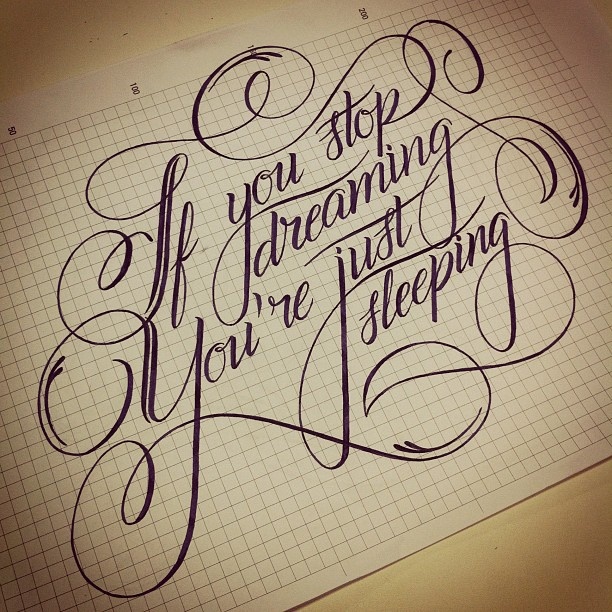 50
100
200
If you stop
dreaming
You're just
sleeping